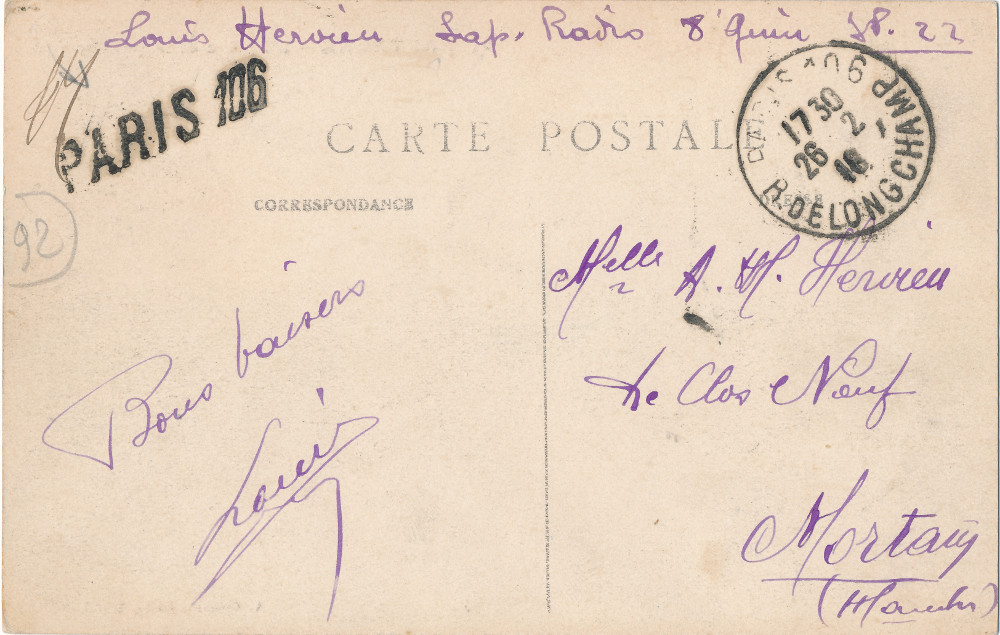 Louis Hervieu Sap. Radio 8e Génie SP. 22
PARIS 106
CARTE POSTALE
PARIS 106
17 30
26 - 2
16
R. DE LONGCHAMP
CORRESPONDANCE
92
Melle A. M. Hervieu
Le Clos Neuf
Mortain
(Manche)
Bons baisers
Louis